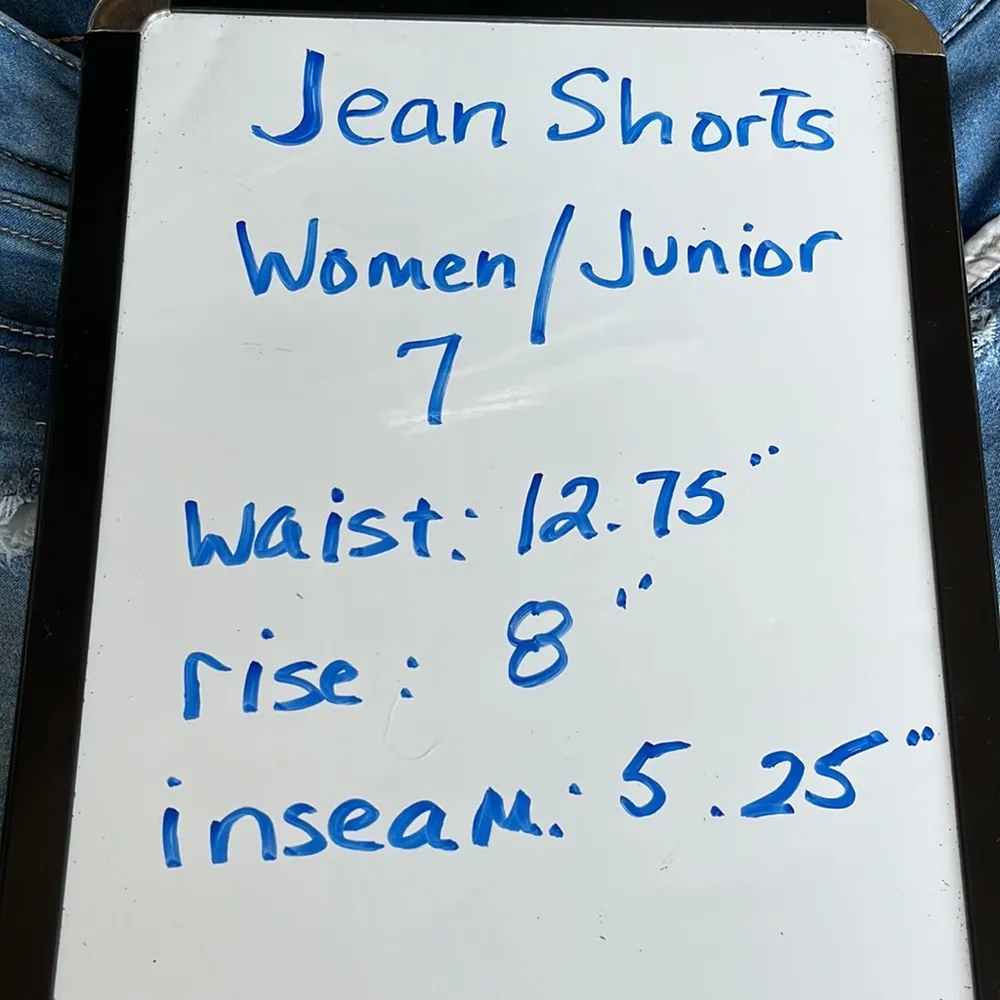 Jean Shorts
Women/Junior
7
Waist: 12.75"
rise: 8"
inseam: 5.25"